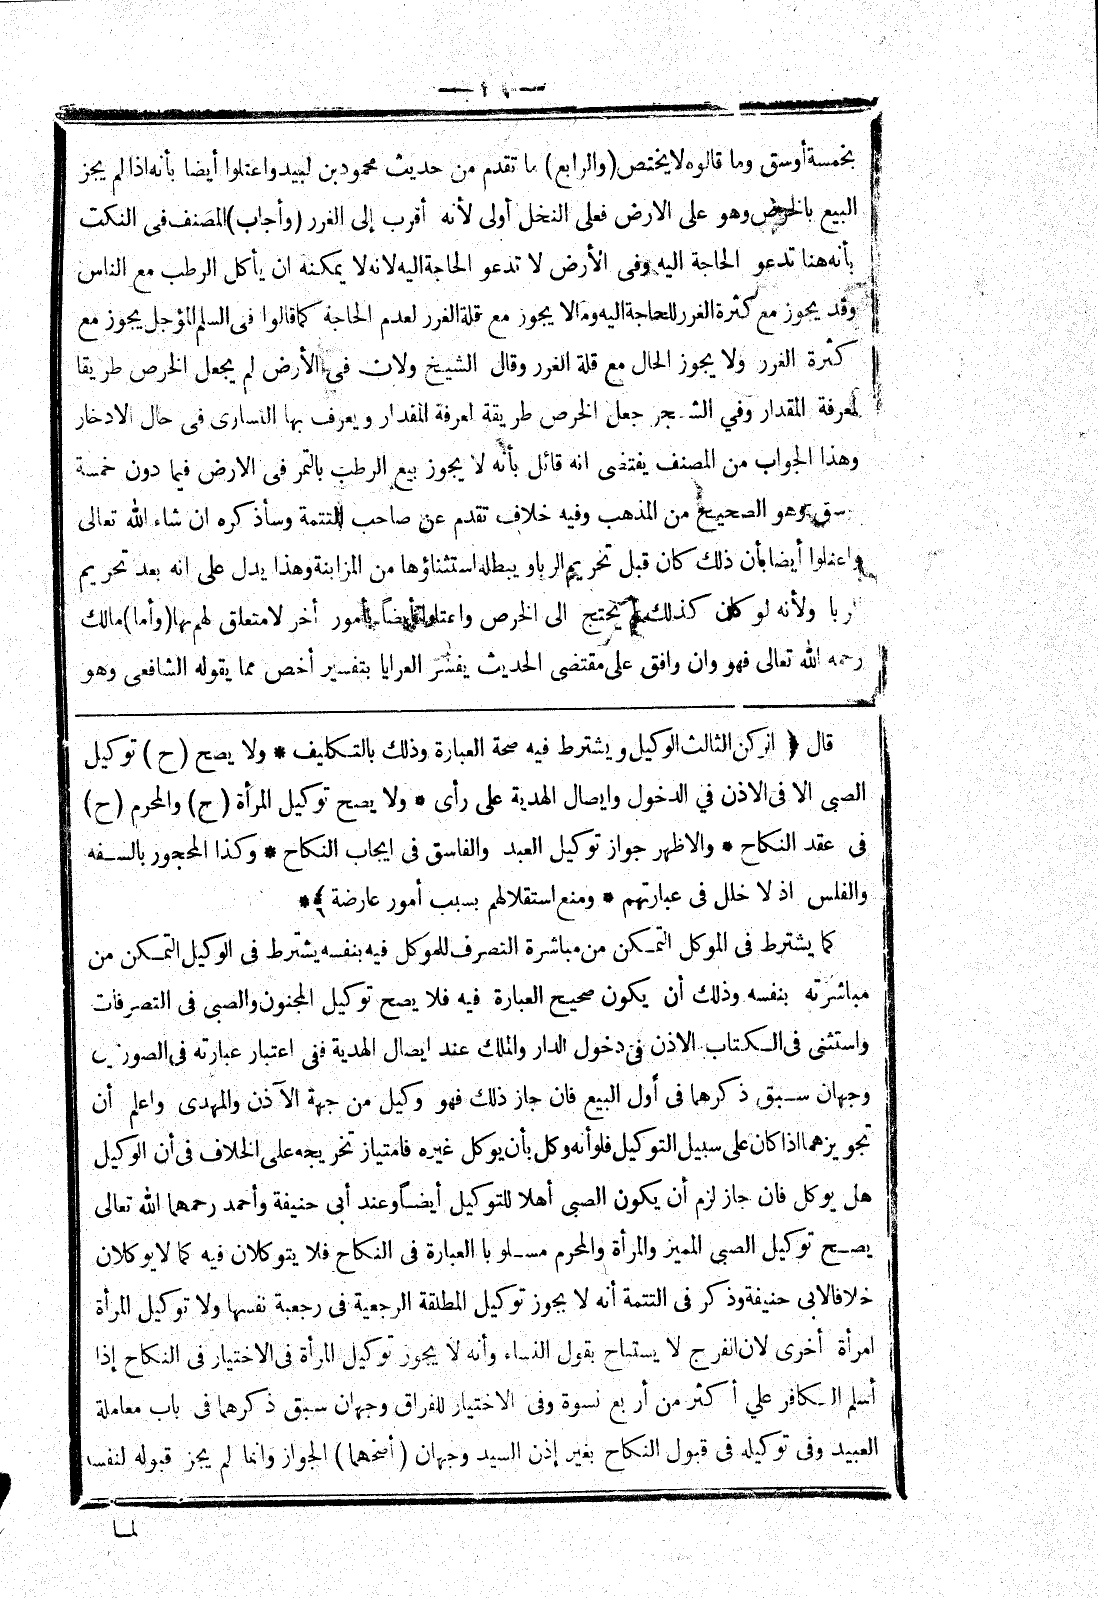 بخمسة أوسق وما قالوه لا يختص (والرابع) ما تقدم من حديث محمود بن لبيد واعتلوا أيضا بأنه اذا لم يجز
البيع بالخرص وهو على الارض فعلى النخل أولى لأنه أقرب إلى الغرر (وأجاب) المصنف فى النكت
بأنه هنا تدعو الحاجة اليه وفى الأرض لا تدعو الحاجة اليه لانه لا يمكنه ان يأكل الرطب مع الناس
وقد يجوز مع كثرة الغرر للحاجة اليه وما لا يجوز مع قلة الغرر لعدم الحاجة كما قالوا فى السلم المؤجل يجوز مع
كثرة الغرر ولا يجوز الحال مع قلة الغرر وقال الشيخ ولان فى الأرض لم يجعل الخرص طريقا
لمعرفة المقدار وفي الشجر جعل الخرص طريقة لمعرفة المقدار ويعرف بها التساوى فى حال الادخار
وهذا الجواب من المصنف يقتضى انه قائل بأنه لا يجوز بيع الرطب بالتمر فى الارض فيما دون خمسة
أوسق وهو الصحيح من المذهب وفيه خلاف تقدم عن صاحب التتمة وسأذكره ان شاء الله تعالى
واعتلوا أيضا بأن ذلك كان قبل تحريم الربا ويبطله استثناؤها من المزابنة وهذا يدل على انه بعد تحريم
الربا ولأنه لو كان كذلك لم يحتج الى الخرص واعتلوا أيضاً بأمور أخر لا متعلق لهم بها (وأما) مالك
رحمه الله تعالى فهو وان وافق على مقتضى الحديث يفسر العرايا بتفسير أخص مما يقوله الشافعى وهو
قال ﴿ الركن الثالث الوكيل ويشترط فيه صحة العبارة وذلك بالتكليف * ولا يصح (ح) توكيل
الصبى الا فى الاذن في الدخول وايصال الهدية على رأى * ولا يصح توكيل المرأة (ح) والمحرم (ح)
فى عقد النكاح * والاظهر جواز توكيل العبد والفاسق فى ايجاب النكاح * وكذا المحجور بالسفه
والفلس اذ لا خلل فى عبارتهم * ومنع استقلالهم بسبب أمور عارضة ﴾ *
كما يشترط فى الموكل التمكن من مباشرة التصرف للموكل فيه بنفسه يشترط فى الوكيل التمكن من
مباشرته بنفسه وذلك أن يكون صحيح العبارة فيه فلا يصح توكيل المجنون والصبى فى التصرفات
واستثنى فى الكتاب الاذن فى دخول الدار والملك عند ايصال الهدية ففى اعتبار عبارته فى الصورتين
وجهان سبق ذكرهما فى أول البيع فان جاز ذلك فهو وكيل من جهة الآذن والمهدى واعلم أن
تجويزهما اذا كان على سبيل التوكيل فلو أنه وكل بأن يوكل غيره فامتياز تخريجه على الخلاف فى أن الوكيل
هل يوكل فان جاز لزم أن يكون الصبى أهلا للتوكيل أيضاً وعند أبى حنيفة وأحمد رحمهما الله تعالى
يصح توكيل الصبى المميز والمرأة والمحرم مسلوبا العبارة فى النكاح فلا يتوكلان فيه كما لا يوكلان
خلافا لابى حنيفة وذكر فى التتمة أنه لا يجوز توكيل المطلقة الرجعية فى رجعية نفسها ولا توكيل المرأة
امرأة أخرى لان الفرج لا يستباح بقول النساء وأنه لا يجوز توكيل المرأة فى الاختيار فى النكاح إذا
أسلم الكافر علي أكثر من أربع نسوة وفى الاختيار للفراق وجهان سبق ذكرهما فى باب معاملة
العبيد وفى توكيله فى قبول النكاح بغير إذن السيد وجهان (أصحهما) الجواز وانما لم يجز قبوله لنفسه
لما